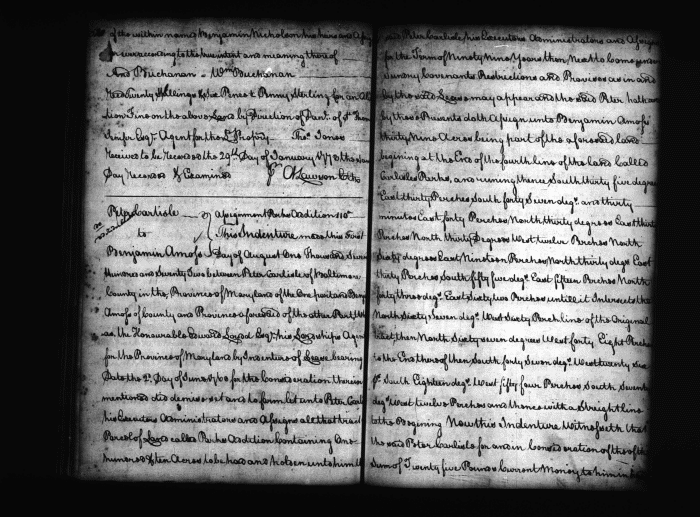 of the within named Benjamin Nicholson his heirs and
for ever according to the true intent and meaning there of
And.w Buchanan - W.m Buchanan
Rec.d Twenty Shillings & Six Pence & Penny Sterling for an
tion Fine on the above Land by Direction of Dan.l of S.t Thom
Jenifer Esq.r Agent for the L.d Propr.y Tho.s Jones
Received to be Recorded the 29.th Day of January 1773 the same
Day Recorded & Examined A Lawson Clk
Peter Carlisle assignment Parks Addition 110.a
to This Indenture made this First
Benjamin Amoss Day of August One Thousand Seven
Hundred and Seventy Two between Peter Carlisle of Baltimore
County in the Province of Maryland of the One part and Benj
Amoss of County and Province aforesaid of the other Part
as the Honourable Edward Lloyd Esq.r his Lordships Agent
for the Province of Maryland by Indenture of Lease bearing
Date the 2.d Day of June 1760 for the Consideration therein
mentioned did demise set and to farm let unto Peter Carl
his Executors Administrators and Assigns all that tract
Parcel of Land called Parks Addition Containing One
hundred & ten Acres to be had and holden unto him the
said Peter Carlisle his Executors Administrators and Assigns
for the Term of Ninety Nine Years then Next to Come
Sundry Covenants Restrictions and Provisoes as in and
by the said Lease may appear and the said Peter hath
by these Presents doth Assign unto Benjamin Amoss
thirty Nine Acres being part of the aforesaid land
begining at the End of the fourth line of the land Called
Carlisles Parks, and running thence South thirty five degrees
East thirty Perches South forty Seven deg.s and thirty
minutes East forty Perches North thirty degrees East thirt
Perches North thirty Degrees West twelve Perches North
Sixty degrees East Nineteen Perches North thirty deg.s East
thirty Perches South fifty five deg.s East fifteen Perches North
forty three deg.s East Sixty two Perches untill it Intersects the
North Sixty Seven deg.s West Sixty Perch line of the Original
tract then North Sixty Seven degrees West forty Eight Perches
to the End thereof then South forty Seven deg.s West twenty Six
p.s South Eighteen deg.s West fifty four Perches South Seventy
deg.s West twelve Perches and thence with a Streight line
to the Begining Now this Indenture Witnesseth that
the said Peter Carlisle for and in Consideration of the
Sum of Twenty five Pounds Current Money to him in